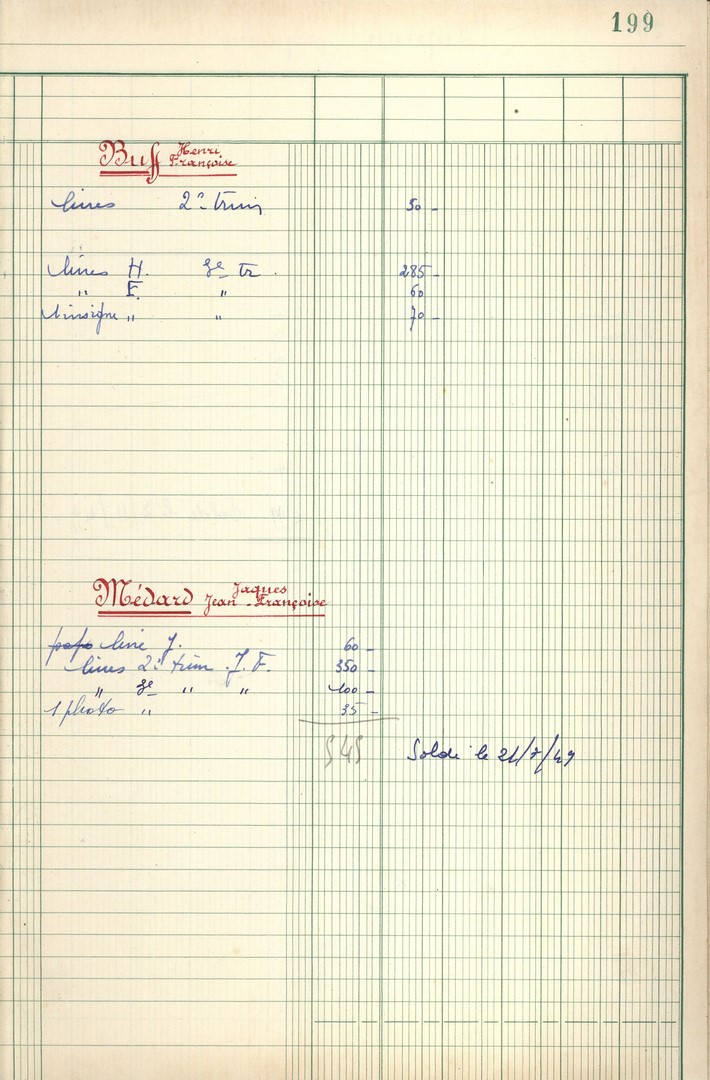 199
Buff Henri
Françoise
livres 2e trim 50 -
livres H. 3e tr. 285 -
" F. " 60
1 insigne " " 70 -
Médard Jaques
Jean-Françoise
livre J. 60 -
livres 2e trim. J. F. 350 -
" 3e " " 100 -
1 photo " 35 -
545 Soldé le 21/7/49